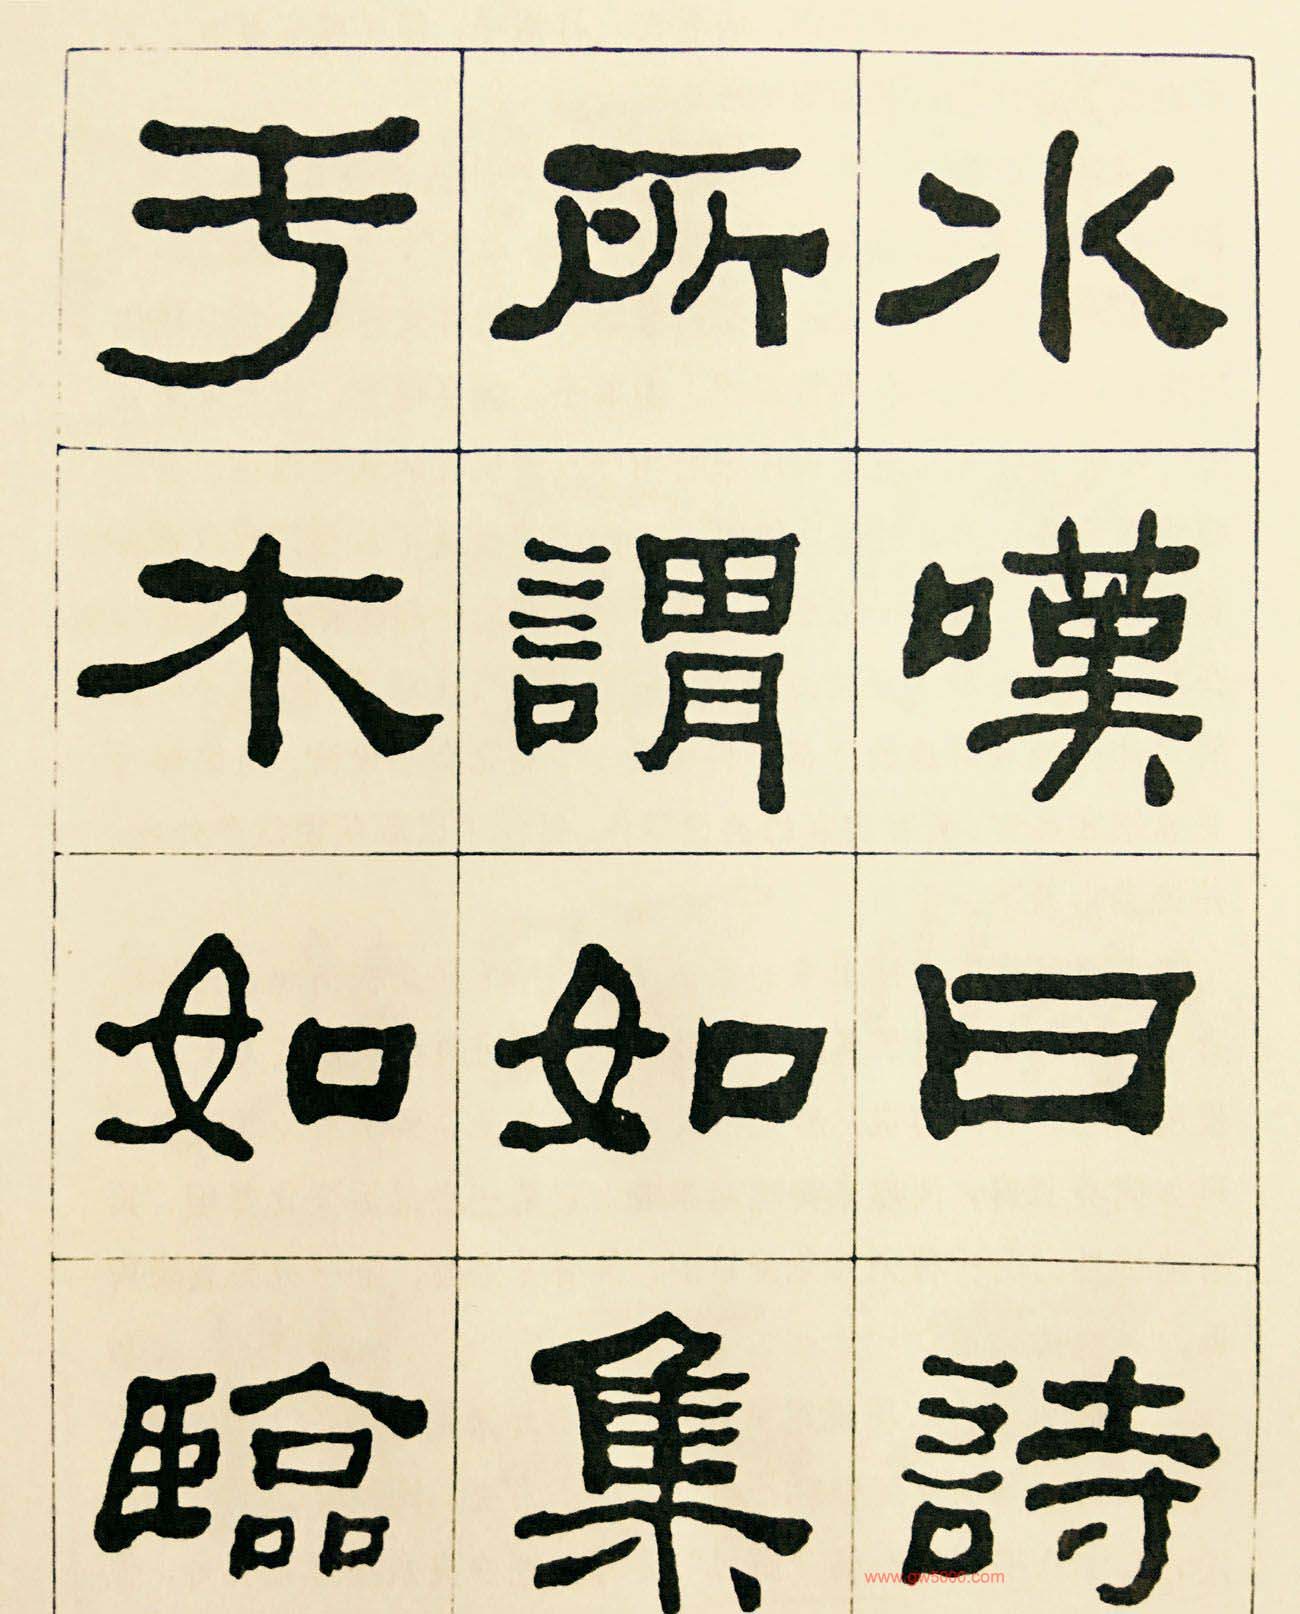 冰嘆曰詩
所謂如集
于木如臨
www.gw5000.com